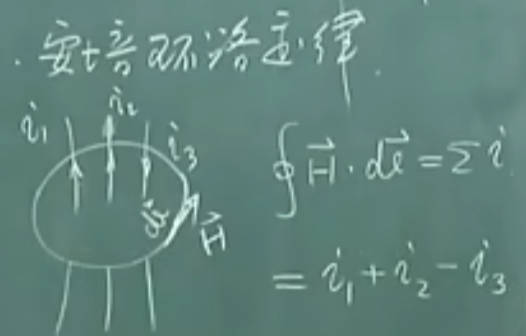 ·安培环路定律.
i₁ i₂ i₃
∮H⃗·dl⃗=Σi
dl⃗ H⃗
=i₁+i₂-i₃